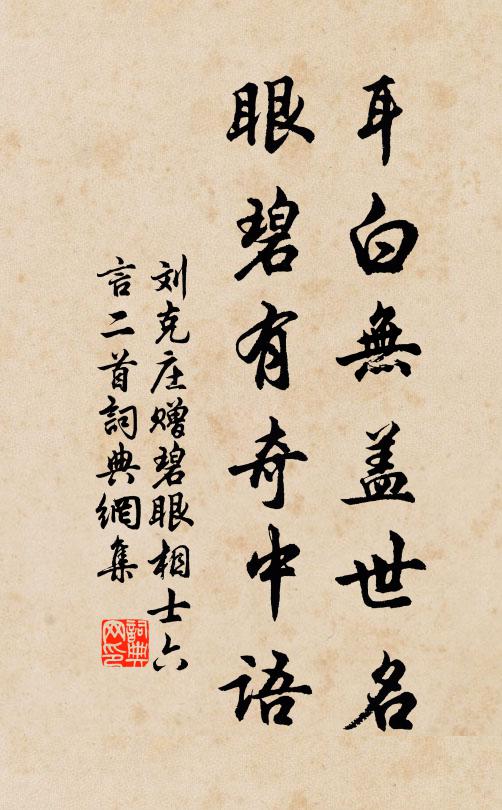 耳白無盖世名
眼碧有奇中語
刘克庄赠碧眼相士六
言二首詞典網集
詞典網印